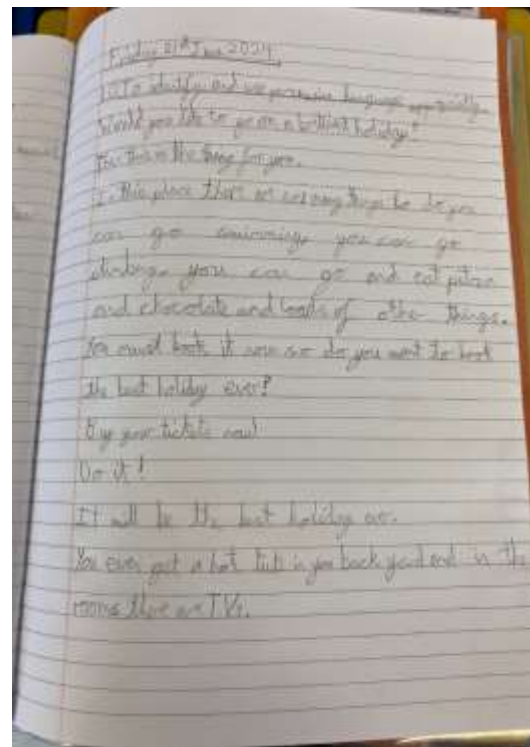 Friday 21st June 2024
LO: To identify and use persuasive language
Would you like to go on a brilliant holiday?
Then this is the thing for you.
In this place there are many things to do you
can go swimming, you can go
climbing, you can go and eat pizza
and chocolate and loads of other things.
You must book it now so do you want to book
the best holiday ever?
Buy your tickets now!
Do it!
It will be the best holiday
You even get a hot tub in you back yard and in the
rooms there are TVs.